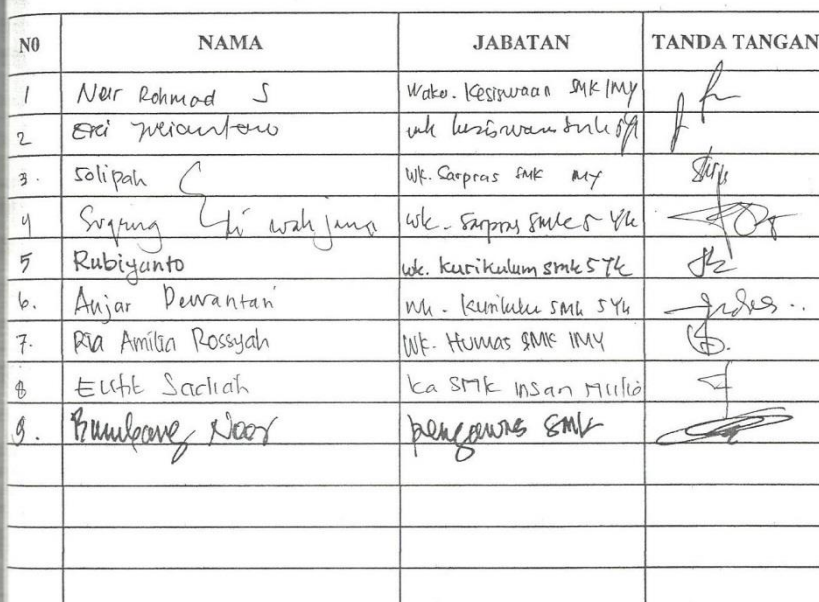 N0 NAMA JABATAN TANDA TANGAN
1 Nur Rohmad S Wako. Kesiswaan SMK IMY
2 Eri wk kesiswaan smk 5 Yk
3. Solipah Wk. Sarpras SMK MY
4 Sugeng Tri wahjana wk. Sarpras Smk 5 Yk
5 Rubiyanto wk. kurikulum smk 5 Yk
6. Anjar Dewantari Wk. Kurikulu SMK 5 Yk
7. Ria Amilia Rossyah Wk. Humas SMK IMY
8 Sadiah ka SMK Insan Mulia
9. Bambang Noor pengawas SMK